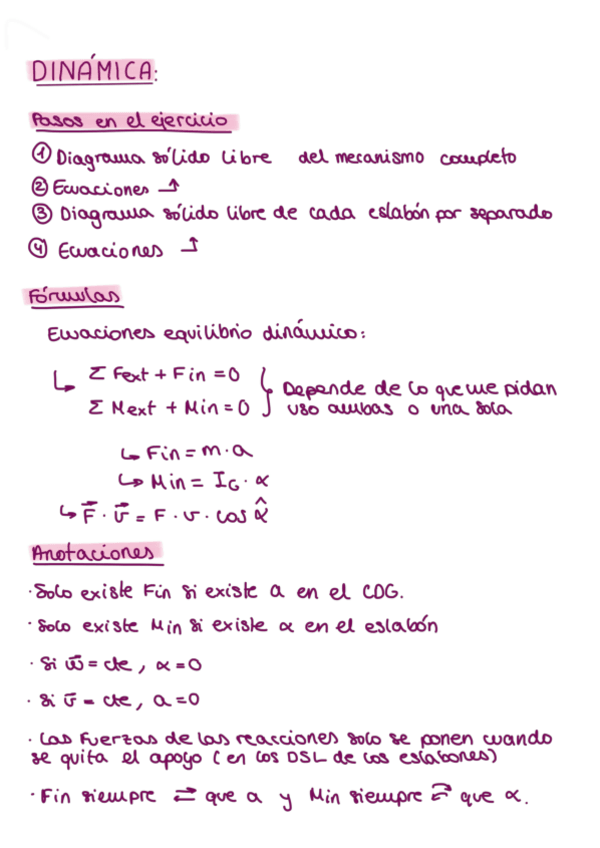 DINÁMICA:
Pasos en el ejercicio
① Diagrama sólido libre del mecanismo completo
② Ecuaciones ⤴
③ Diagrama sólido libre de cada eslabón por separado
④ Ecuaciones ⤴
Fórmulas
Ecuaciones equilibrio dinámico:
↳ Σ Fext + Fin = 0
Σ Mext + Min = 0
} Depende de lo que me pidan
uso ambas o una sola
↳ Fin = m · a
↳ Min = I_G · α
↳ F⃗ · v⃗ = F · v · cos α̂
Anotaciones
· Solo existe Fin si existe a en el CDG.
· Solo existe Min si existe α en el eslabón
· Si w⃗ = cte, α = 0
· Si v⃗ = cte, a = 0
· Las fuerzas de las reacciones solo se ponen cuando
se quita el apoyo (en los DSL de los eslabones)
· Fin siempre ⇄ que a y Min siempre ⇄ que α.